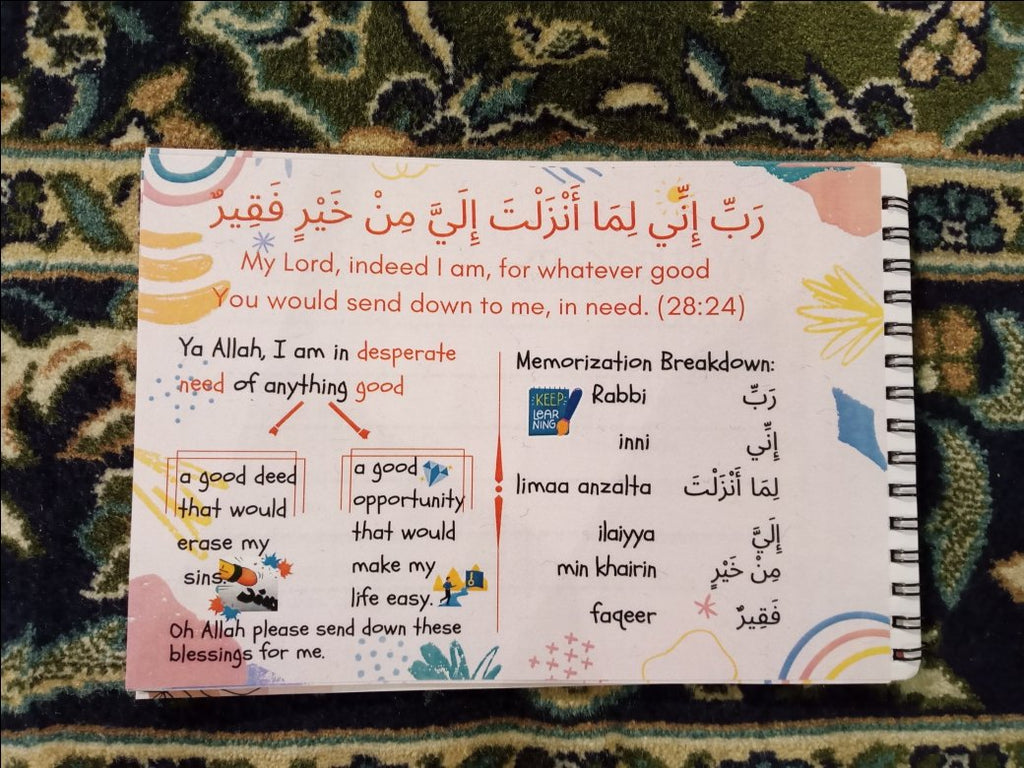 رَبِّ إِنِّي لِمَا أَنْزَلْتَ إِلَيَّ مِنْ خَيْرٍ فَقِيرٌ
My Lord, indeed I am, for whatever good
You would send down to me, in need. (28:24)
Ya Allah, I am in desperate
need of anything good
a good deed
that would
erase my
sins.
a good
opportunity
that would
make my
life easy.
Oh Allah please send down these
blessings for me.
Memorization Breakdown:
KEEP
LEAR
NING
Rabbi رَبِّ
inni إِنِّي
limaa anzalta لِمَا أَنْزَلْتَ
ilaiyya إِلَيَّ
min khairin مِنْ خَيْرٍ
faqeer فَقِيرٌ